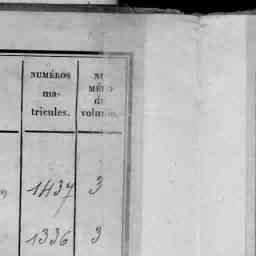 NUMÉROS
ma-
tricules.
NU
MÉRO
du
volume.
1437 3
1336 3